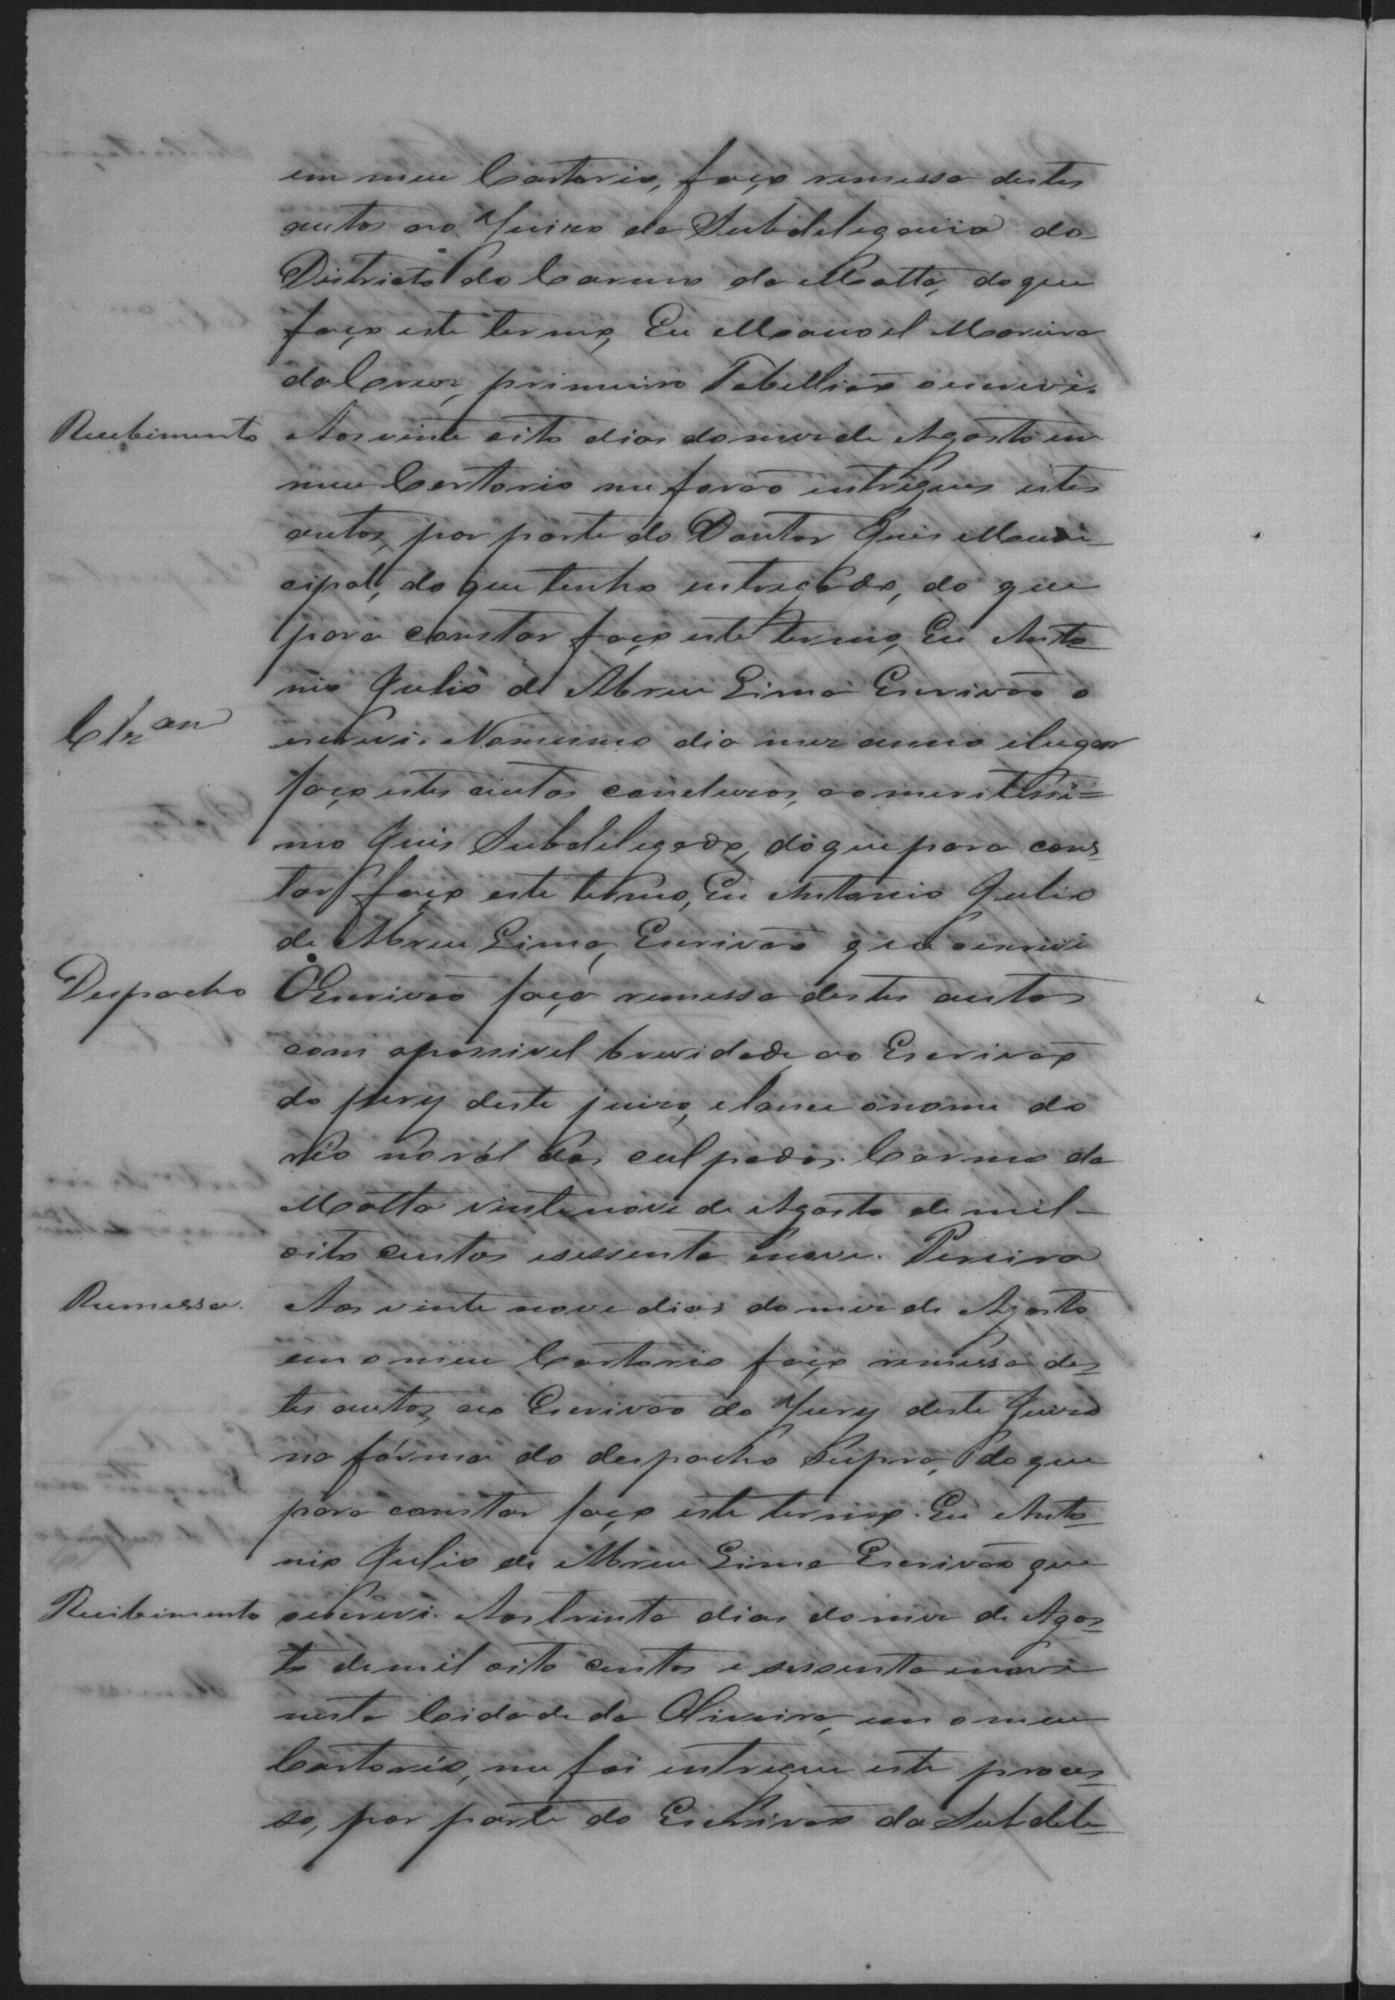 em meu Cartorio, faço remessa destes
autos ao Juizo da Subdelegacia do
Districto do Carmo da Matta, do que
faço este termo, Eu Manoel Moreira
da Cruz, primeiro Tabellião o escrevi.
Recebimento Aos vinte oito dias do mez de Agosto em
meu Cartorio me forão entregues estes
autos, por parte do Doutor Juis Muni-
cipal, do que tenho entregado, do que
para constar faço este termo, Eu Anto-
nio Julio de Abreu Lima Escrivão o
Clzam escrevi. No mesmo dia mez anno e lugar
faço estes autos concluzos, ao meritissi=
mo Juis Subdelegado, do que para cons-
tar faço este termo, Eu Antonio Julio
de Abreu Lima, Escrivão que o escrevi
Despacho O Escrivão faça remessa destes autos
com a possivel brevidade, ao Escrivão
do jury deste juizo, e lance o nome do
réo no ról dos culpados. Carmo da
Matta vinte nove de Agosto de mil-
oito centos e sessenta e nove. Pereira
Remessa. Aos vinte nove dias do mez de Agosto
em o meu Cartorio faço remessa des-
tes autos, ao Escrivão do Jury deste Juizo
na fórma do despacho supra, do que
para constar faço este termo. Eu Anto-
nio Julio de Abreu Lima Escrivão que
Recibimento o escrevi. Aos trinta dias do mez de Agos-
to de mil oito centos e sessenta e nove
nesta Cidade da Oliveira, em o meu
Cartorio, me foi entregue este proces-
so, por parte do Escrivão da Subdele-